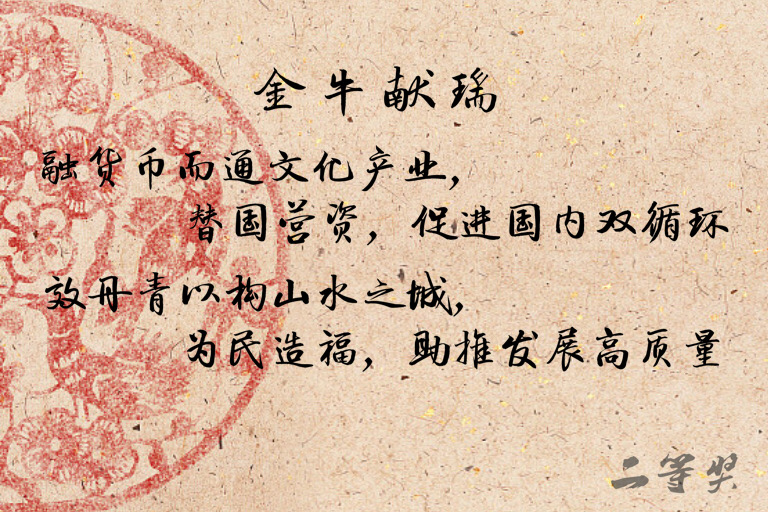 金牛献瑞
融货币而通文化产业，
替国营资，促进国内双循环
效丹青以构山水之城，
为民造福，助推发展高质量
二等奖